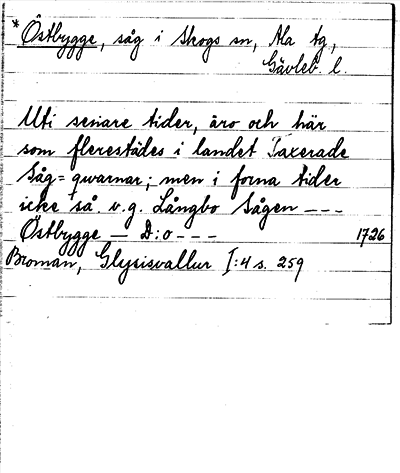 * Östbygge, såg i Skogs sn, Ala tg,
Gävleb. l.
Uti senare tider, äro och här
som flerestädes i landet Taxerade
Såg=qwarnar; men i forna tider
icke så. v.g. Långbo Sågen ---
Östbygge — D:o --- 1726
Broman, Glysisvallur I:4 s. 259